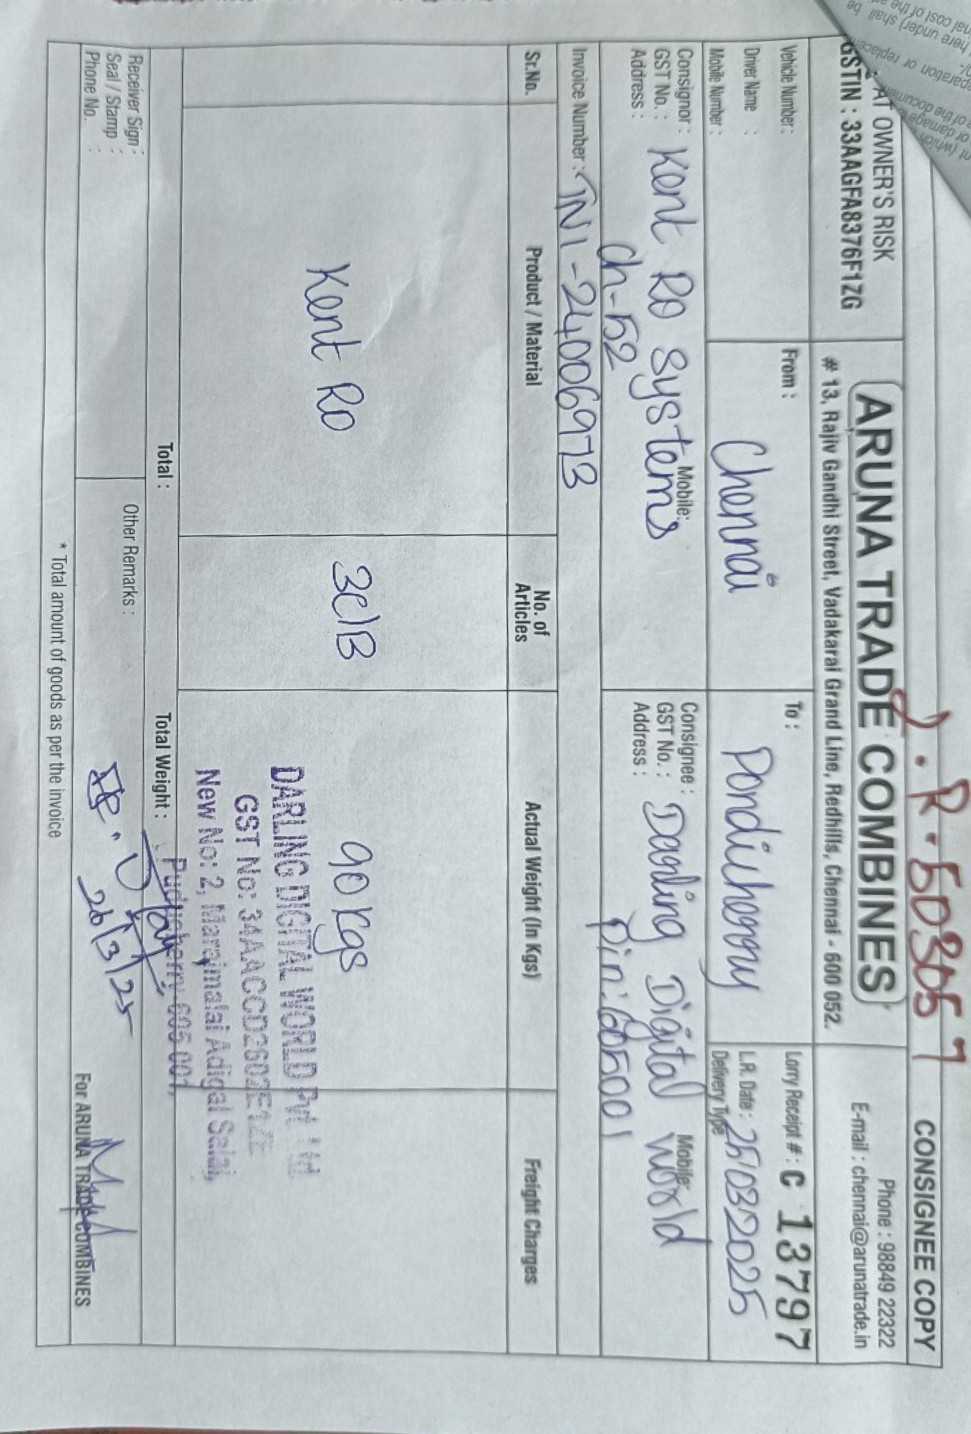 J.R. 503057
CONSIGNEE COPY
AT OWNER'S RISK
GSTIN : 33AAGFA8376F1ZG
ARUNA TRADE COMBINES
# 13, Rajiv Gandhi Street, Vadakarai Grand Line, Redhills, Chennai - 600 052.
Phone : 98849 22322
E-mail : chennai@arunatrade.in
Vehicle Number :
Driver Name :
Mobile Number :
From : Chennai
To : Pondicherry
Lorry Receipt # : C 13797
L.R. Date : 25/03/2025
Delivery Type
Consignor : Kent RO Systems
GST No. :
Address : Ch-52
Mobile:
Consignee : Darling Digital World
GST No. :
Address : Pin: 605001
Mobile:
Invoice Number : TN1-24006973
Sr.No. Product / Material No. of Articles Actual Weight (In Kgs) Freight Charges
Kent RO 3C/B 90 Kgs
DARLING DIGITAL WORLD Pvt Ltd
GST No: 34AACCD2602E1ZE
New No: 2, Maraimalai Adigal Salai,
Puducherry-605 001,
Total :
Total Weight :
Receiver Sign :
Seal / Stamp :
Phone No. :
Other Remarks :
26/3/25
For ARUNA TRADE COMBINES
* Total amount of goods as per the invoice